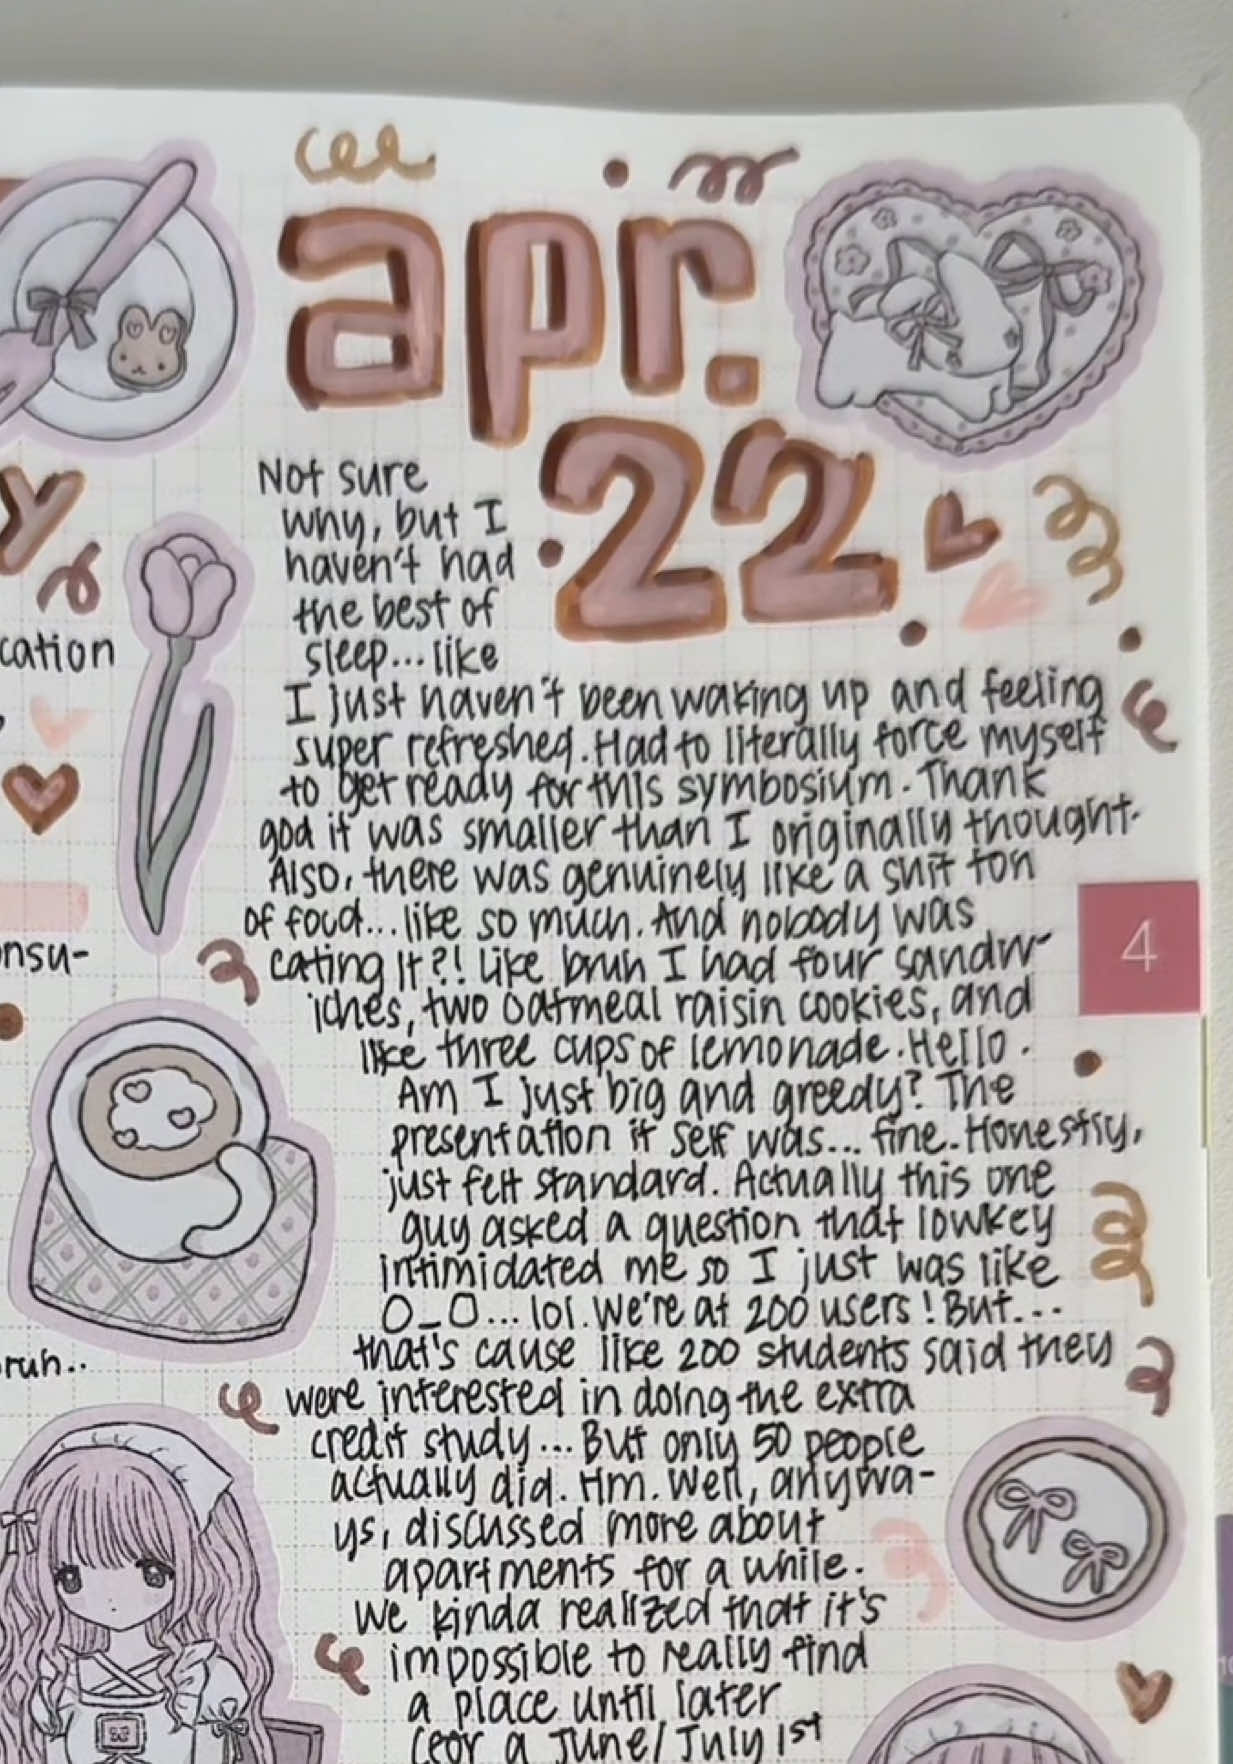 apr.
22
y
Not sure
why, but I
haven't had
the best of
sleep...like
I just haven't been waking up and feeling
super refreshed. Had to literally force myself
to get ready for this symbosium. Thank
god it was smaller than I originally thought.
Also, there was genuinely like a shit ton
of food...like so much. And nobody was
eating it?! Like bruh I had four sandw-
iches, two oatmeal raisin cookies, and
like three cups of lemonade. Hello.
Am I just big and greedy? The
presentation it self was... fine. Honestly,
just felt standard. Actually this one
guy asked a question that lowkey
intimidated me so I just was like
O_O...lol. We're at 200 users! But...
that's cause like 200 students said they
were interested in doing the extra
credit study... But only 50 people
actually did. Hm. Well, anywa-
ys, discussed more about
apartments for a while.
We kinda realized that it's
impossible to really find
a place until later
(for a June/July 1st
cation
nsu-
ruh..
4